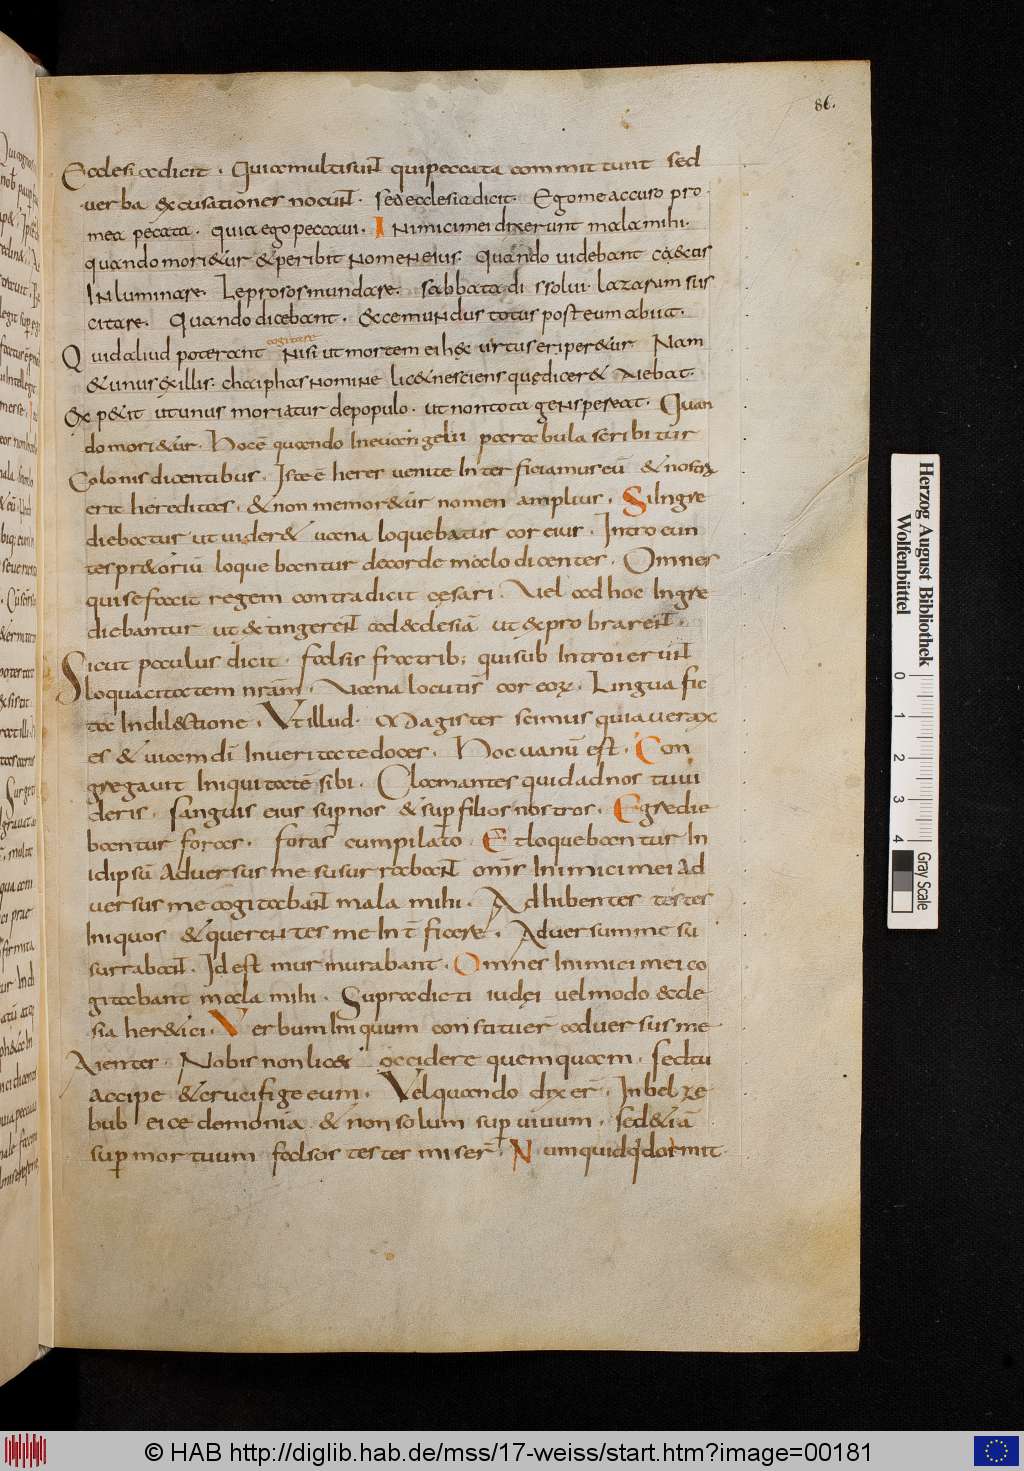 86.
Ecclesia dicit . Quia multi sunt qui peccata committunt sed
verba excusationes nocunt . sed ecclesia dicit . Ego me accuso pro
mea pecata . quia ego peccavi . Inimici mei dixerunt mala mihi .
quando mori&ur & peribit nomen eius . Quando videbant cæc̨&us
Inluminare . Leprosos mundare . sabbata dissolui . lazarum sus
citare . Quando dicebant . Ecce mundus totus post eum abiit .
cogitare
Quid aliud poterant Nisi ut mortem ei hęc virtus eriper&ur Nam
& unus ex illis . chaiphas nomine lic& nesciens quę dicer& Aiebat .
Exp&it ut unus moriatur de populo . ut non tota gens pereat . Quan
do mori&ur . Hoc ē quando In evangelii parabula scribitur
Colonis dicentibus . Iste ē heres venite Interficiamus eū & nostra
erit hereditas . & non memor&ur nomen amplius . Si Ingre
diebatur ut vider& vana loquebatur cor eius . Intro eun
tes pr&oriū loquebantur de corde malo dicentes . Omnes
qui se facit regem contradicit cęsari . Vel ad hoc Ingre
diebantur ut & tingerent ad ecclesiā ut & probrarent .
Sicut paulus dicit . falsis fratrib; qui sub Introierunt
loquacitatem nrām . Vana locutus cor eoꝝ . Lingua fic
ta In dil&tione . Vt illud . Magister scimus quia verax
es & viam dī In veritate doces . Hoc vanū est . Con
gregavit Iniquitatē sibi . Clamantes quid ad nos tu vi
deris . sanguis eius sup nos & sup filios nostros . Egredie
bantur foras . foras cum pilato . Et loquebantur In
idipsū Adversus me susurrabant omnes Inimici mei ad
versus me cogitabant mala mihi . Adhibentes testes
Iniquos & querentes me Int̄ficere . Adversum me su
surrabant . Id est murmurabant . Omnes Inimici mei co
gitabant mala mihi . Supradicti iudęi vel modo eccle
sia her&ici . Verbum Iniquum constituer̄ adversus me
Aientes . Nobis non lic& occidere quemquam . sed tu
accipe & crucifige eum . Vel quando dixer̄ . In belze
bub eice demonia & non solum sup vivum . sed &iā
sup mortuum falsos testes miser̄ . Numquid q dormit
Herzog August Bibliothek
Wolfenbüttel
0 1 2 3 4
Gray Scale
© HAB http://diglib.hab.de/mss/17-weiss/start.htm?image=00181